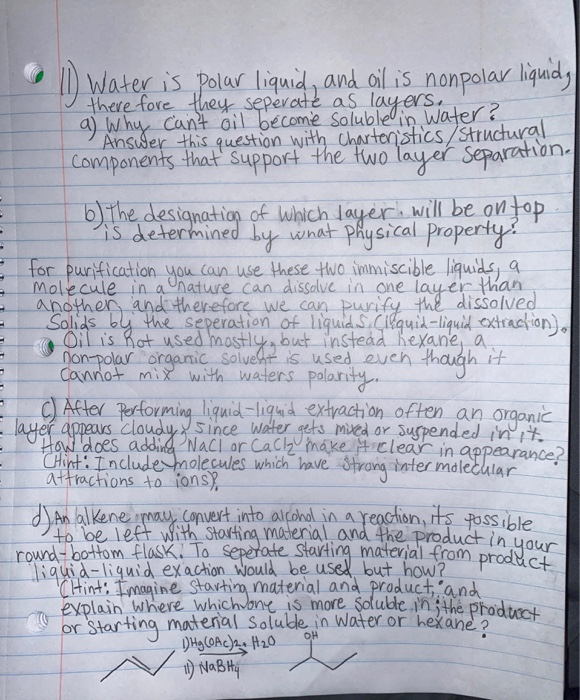 1) Water is polar liquid, and oil is nonpolar liquid,
there fore they seperate as layers.
a) Why can't oil become soluble in water?
Answer this question with charteristics/structural
components that support the two layer separation.
b) The designation of which layer will be on top
is determined by what physical property?
for purification you can use these two immiscible liquids, a
molecule in a nature can dissolve in one layer than
another, and therefore we can purify the dissolved
Solids by the seperation of liquids. (liquid-liquid extraction).
Oil is not used mostly, but instead hexane, a
non-polar organic solvent is used even though it
cannot mix with waters polarity.
c) After Performing liquid-liquid extraction often an organic
layer appears cloudy, since water gets mixed or suspended in it.
How does adding NaCl or CaCl2 make it clear in appearance?
(Hint: Include molecules which have strong intermolecular
attractions to ions)?
d) An alkene may convert into alcohol in a reaction, its possible
to be left with starting material and the product in your
round-bottom flask. To seperate starting material from product
liquid-liquid exaction would be used but how?
(Hint: Imagine starting material and product, and
explain where which one is more soluble in; the product
or starting material soluble in water or hexane?
1) Hg(OAc)2, H2O
OH
11) NaBH4